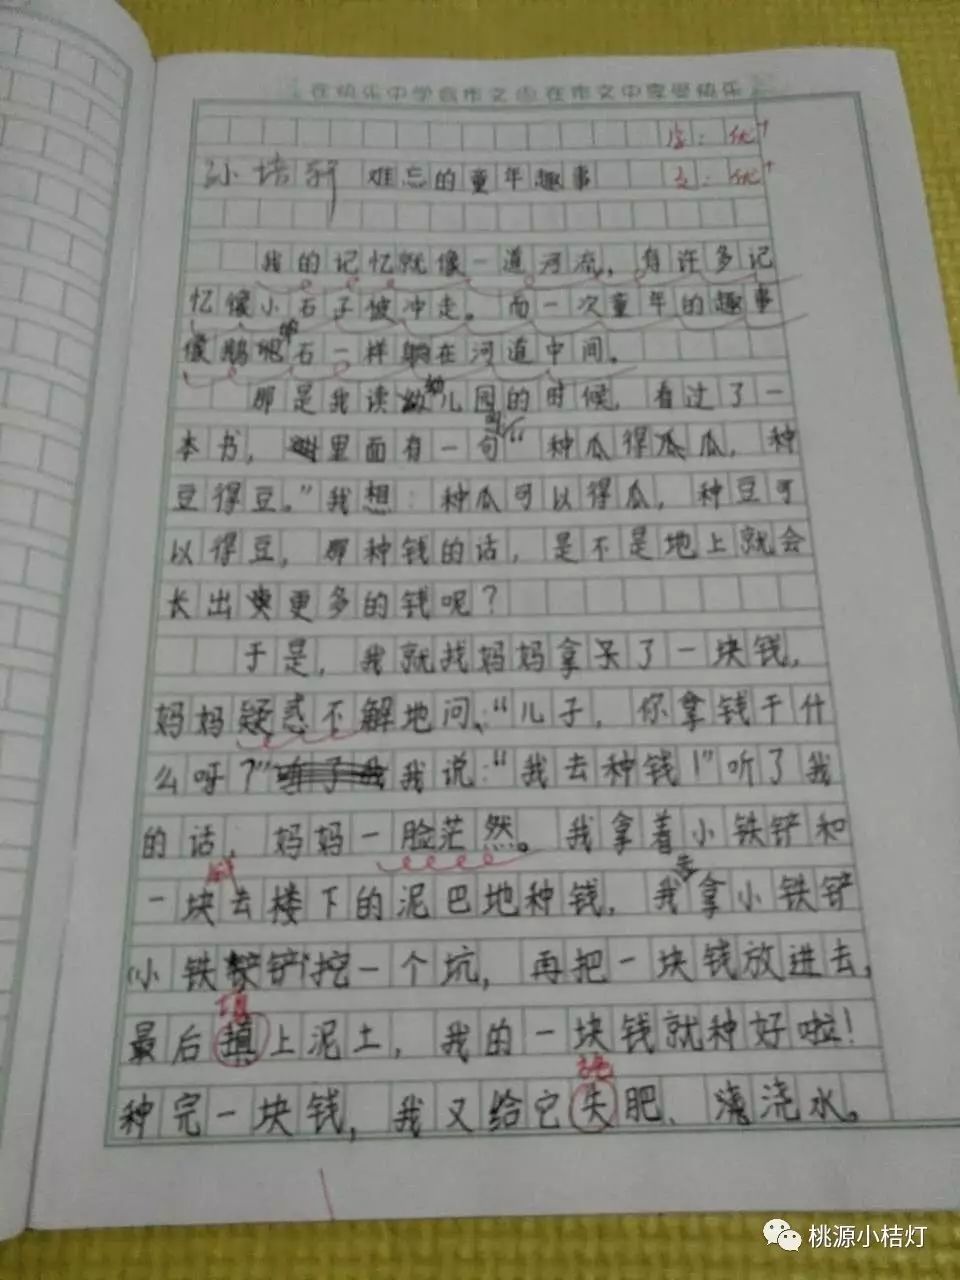 在快乐中学写作文 在作文中享受快乐
字：优+
孙培轩 难忘的童年趣事 文：优+
我的记忆就像一道河流，有许多记
忆像小石子被冲走。而一次童年的趣事
像鹅卵石一样躺在河道中间。
那是我读幼儿园的时候，看过了一
本书，里面有一句"种瓜得瓜，种
豆得豆。"我想：种瓜可以得瓜，种豆可
以得豆，那种钱的话，是不是地上就会
长出更多的钱呢？
于是，我就找妈妈拿来了一块钱，
妈妈疑惑不解地问："儿子，你拿钱干什
么呀？"我说："我去种钱！"听了我
的话，妈妈一脸茫然。我拿着小铁铲和
一块钱去楼下的泥巴地种钱，我先拿小铁铲
小铁铲挖一个坑，再把一块钱放进去，
最后填上泥土，我的一块钱就种好啦！
填
种完一块钱，我又给它失肥、浇浇水。
施
桃源小桔灯